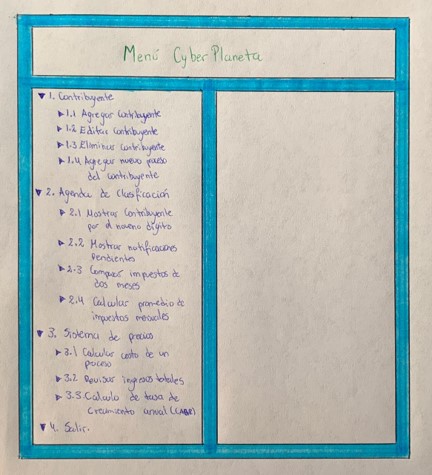 Menú CyberPlaneta
▼ 1. Contribuyente
▶ 1.1 Agregar Contribuyente
▶ 1.2 Editar Contribuyente
▶ 1.3 Eliminar Contribuyente
▶ 1.4 Agregar nuevo proceso
del contribuyente
▼ 2. Agenda de Clasificación
▶ 2.1 Mostrar Contribuyente
por el noveno dígito
▶ 2.2 Mostrar notificaciones
Pendientes
▶ 2.3 Comparar impuestos de
dos meses
▶ 2.4 Calcular promedio de
impuestos mensuales
▼ 3. Sistema de precios
▶ 3.1 Calcular costo de un
proceso
▶ 3.2 Revisar ingresos totales
▶ 3.3 Calculo de tasa de
Crecimiento anual (CAGR)
▼ 4. Salir.